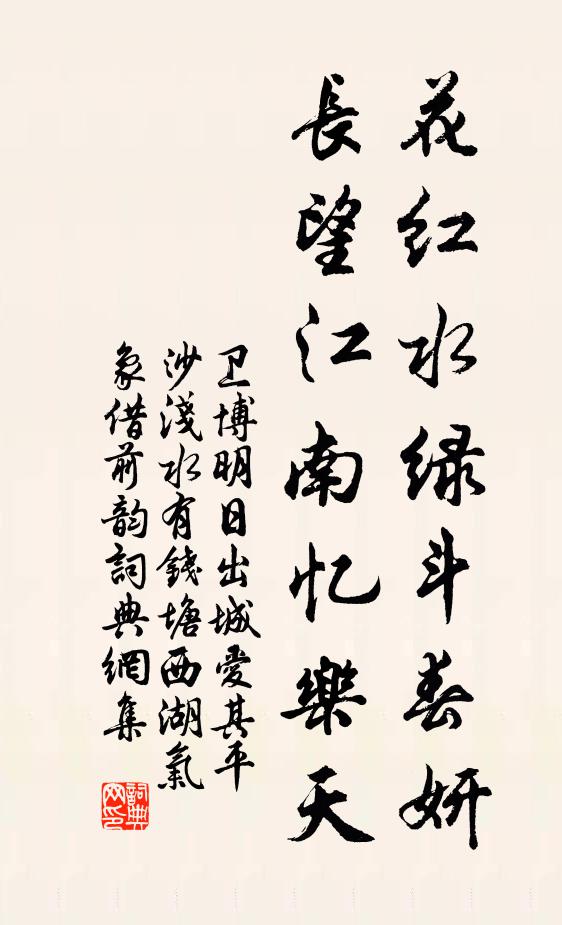 花红水绿斗春妍
長望江南忆樂天
卫博明日出城愛其平
沙淺水有錢塘西湖氣
象借前韵詞典網集
詞典网印